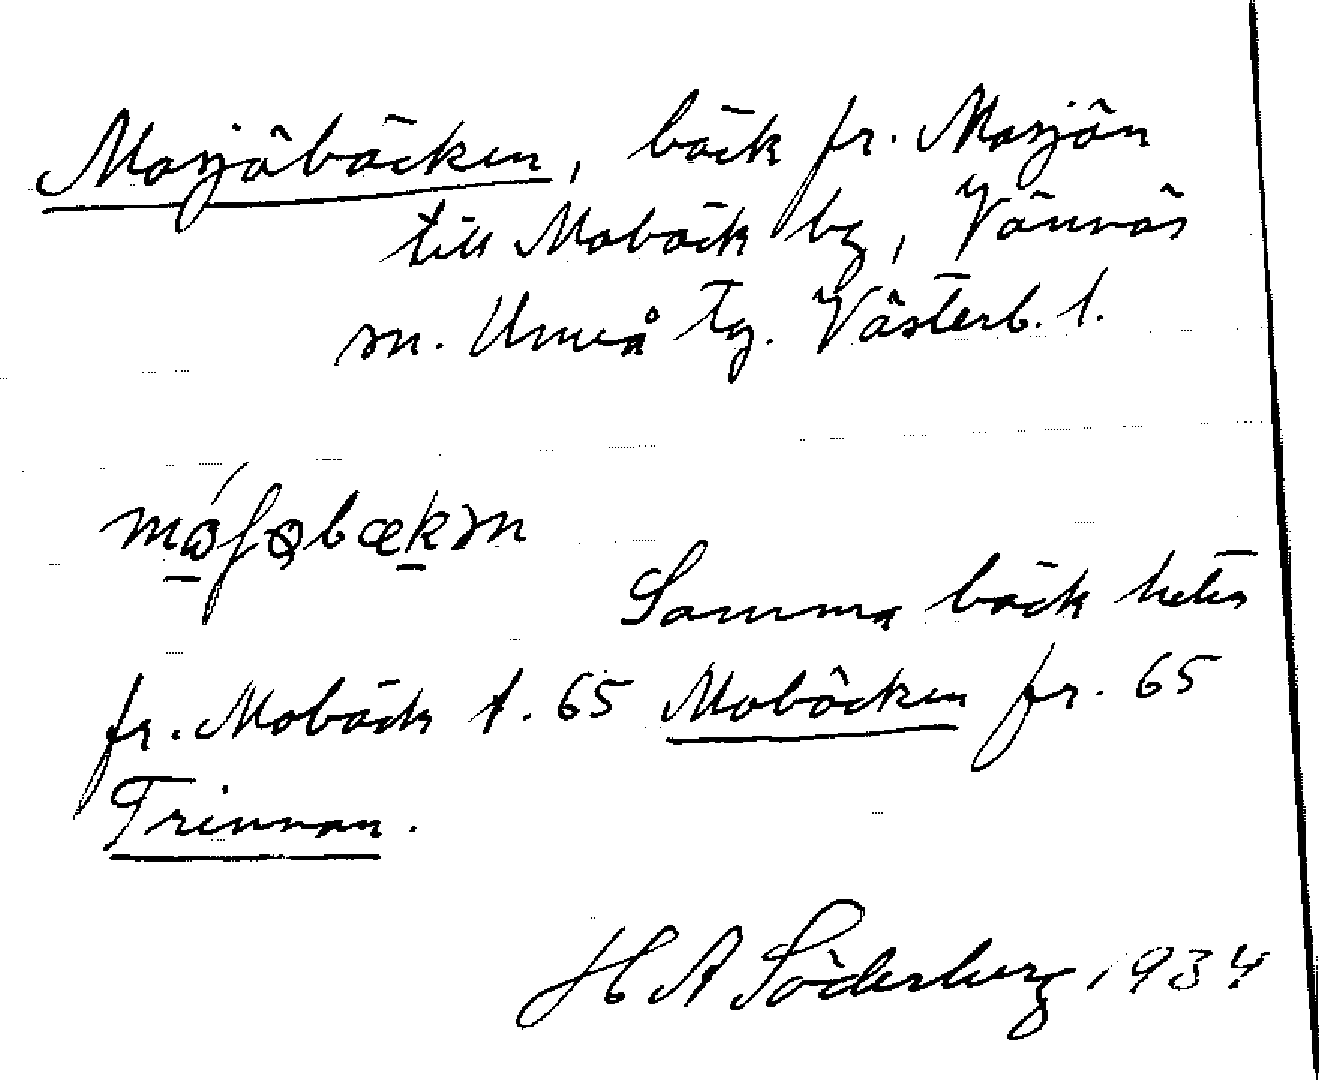 Masjöbäcken, bäck fr. Masjön
till Mobäck by, Vännäs
sn. Umeå tg. Västerb. l.
Samma bäck hetes
fr. Mobäck t. 65 Mobäcken fr. 65
Trinnan.
H A Söderberg 1934